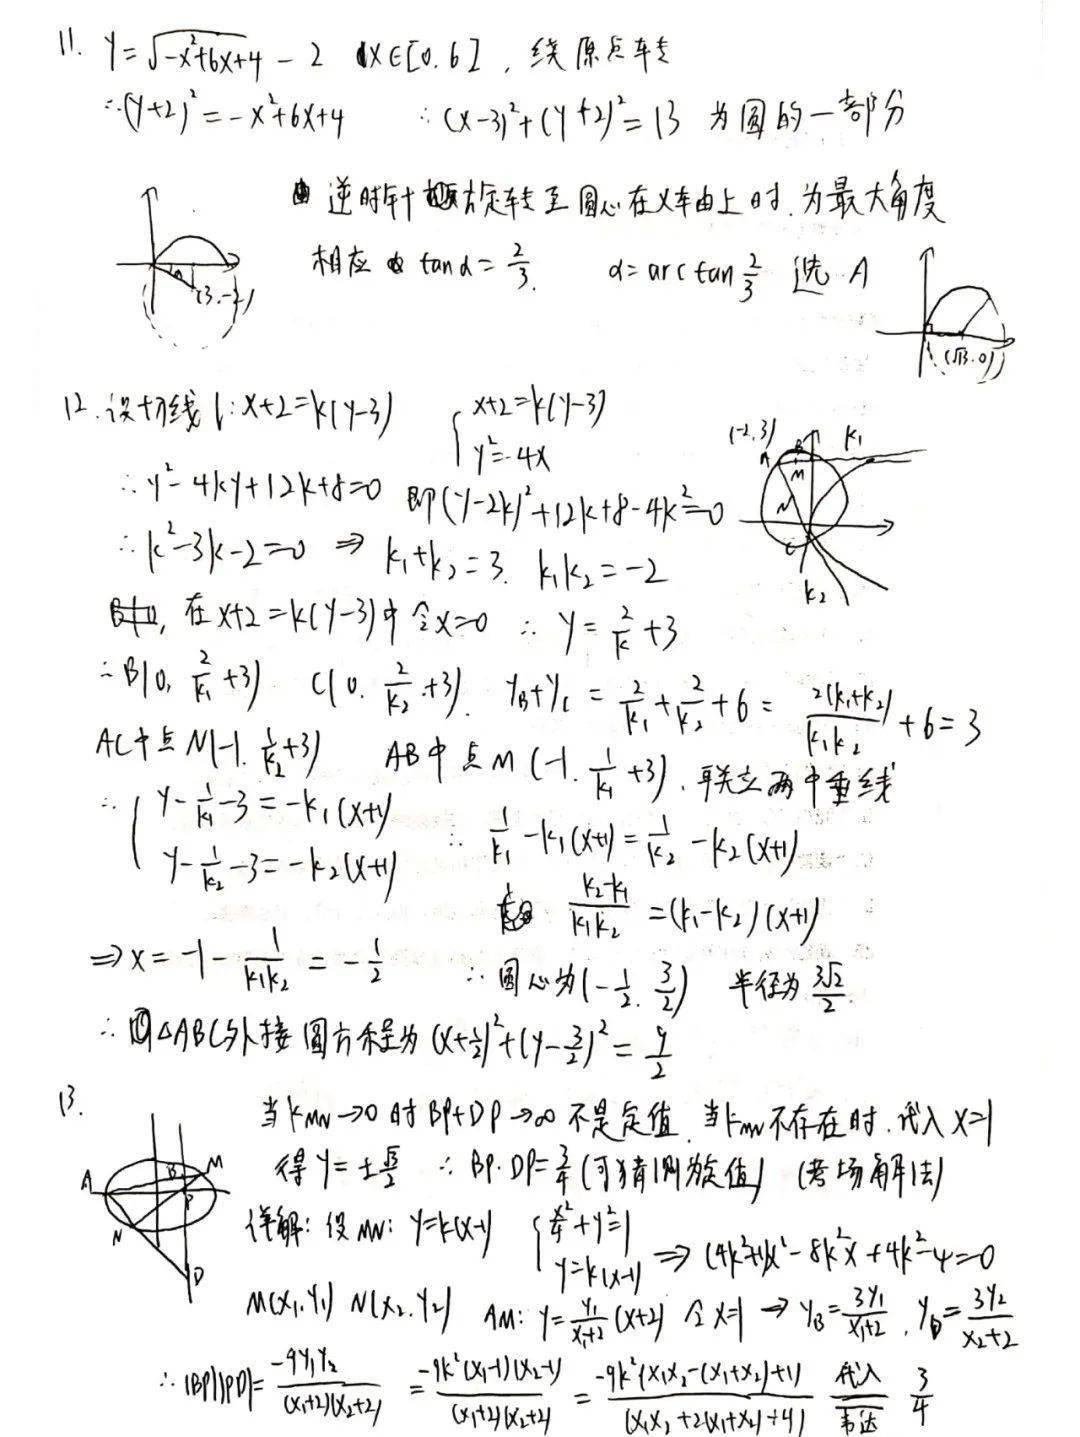 11. y=√(-x²+6x+4) - 2 x∈[0,6], 绕原点转
∴(y+2)²=-x²+6x+4 ∴(x-3)²+(y+2)²=13 为圆的一部分
逆时针旋转至圆心在x轴上时,为最大角度
相应 tanα=2/3. α=arctan 2/3 选 A
(3,-2)
(√13,0)
12. 设切线l: x+2=k(y-3) { x+2=k(y-3) y²=4x
(-2,3) A B M N C k₁ k₂
∴y²-4ky+12k+8=0 即(y-2k)²+12k+8-4k²=0
∴k²-3k-2=0 ⇒ k₁+k₂=3. k₁k₂=-2
在x+2=k(y-3)中令x=0 ∴ y=2/k+3
∴B(0, 2/k₁+3) C(0. 2/k₂+3). y_B+y_C=2/k₁+2/k₂+6=2(k₁+k₂)/k₁k₂+6=3
AC中点N(-1. 1/k₂+3) AB中点M(-1. 1/k₁+3). 联立两中垂线
∴{ y-1/k₁-3=-k₁(x+1) y-1/k₂-3=-k₂(x+1) ∴ 1/k₁-k₁(x+1)=1/k₂-k₂(x+1)
(k₂-k₁)/k₁k₂=(k₁-k₂)(x+1)
⇒x=-1-1/k₁k₂=-1/2 ∴圆心为(-1/2, 3/2) 半径为3√2/2
∴△ABC外接圆方程为(x+1/2)²+(y-3/2)²=9/2
13. 当k_MN→0时BP+DP→∞不是定值. 当k_MN不存在时.代入x=1
得y=±√3/2 ∴BP·DP=3/4(可猜测为定值) (考场解法)
A B M P N D
详解:设MN: y=k(x-1) { x²/4+y²=1 y=k(x-1) ⇒(4k²+1)x²-8k²x+4k²-4=0
M(x₁,y₁) N(x₂,y₂) AM: y=y₁/(x₁+2)(x+2) 令x=1 ⇒y_B=3y₁/(x₁+2), y_D=3y₂/(x₂+2)
∴|BP||PD|=-9y₁y₂/(x₁+2)(x₂+2)=-9k²(x₁-1)(x₂-1)/(x₁+2)(x₂+2)=-9k²(x₁x₂-(x₁+x₂)+1)/(x₁x₂+2(x₁+x₂)+4) 代入韦达 3/4